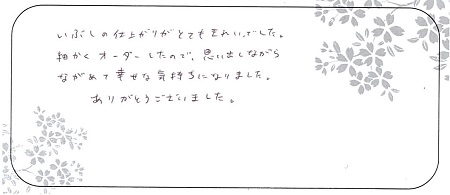 いぶしの仕上がりがとてもきれいでした。
細かくオーダーしたので、思い出しながら
ながめて幸せな気持ちになりました。
ありがとうございました。